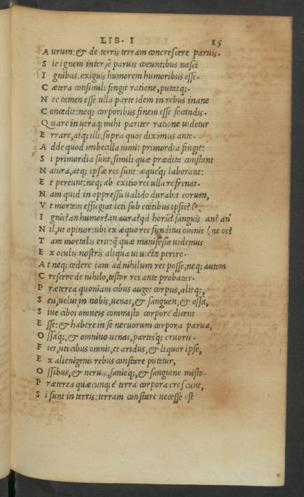 LIB. I 15
Aurum: & de terris terram concrescere paruis.
Sic ignem inter se paruis coeuntibus nasci
Ignibus. exiguis humorem humoribus esse.
Cætera consimili fingit ratione, putatq;.
Nec tamen esse ulla parte idem in rebus inane
Concedit: neq; corporibus finem esse secandis.
Quare in utraq; mihi pariter ratione uidetur
Errare, atq; illi, supra quos diximus ante.
Adde quod imbecilla nimis primordia fingit:
Si primordia sunt, simili quæ prædita constant
Natura, atq; ipsæ res sunt: æqueq; laborant:
Et pereunt: neq; ab exitio res ulla refrenat.
Nam quid in oppressu ualido durabit eorum,
Vt mortem effugiat leti sub dentibus ipsis?
Ignis? an humor? an aura? quid horum? sanguis an? an
Nil, ut opinor: ubi ex æquo res funditus omnis
Tam mortalis erit: quæ manifesta uidemus
Ex oculis nostris aliqua ui uicta perire.
At neq; cedere iam ad nihilum res posse, neq; autem
Crescere de nihilo, testor res ante probatas.
Præterea quoniam cibus auget corpus, alitq;,
Scu, uelut in nobis, uenas, & sanguen, & ossa,
Siue cibos omneis commisto corpore dicent
Esse: & habere in se neruorum corpora parua,
Ossaq;, & omnino uenas, parteisq; cruoris:
Fiet, uti cibus omnis, et aridus, & liquor ipse,
Ex alienigenis rebus constare putetur,
Ossibus, & neruis, sanieq;, & sanguine misto.
Præterea quæcunq; é terra corpora crescunt,
Si sunt in terris: terram constare necesse est